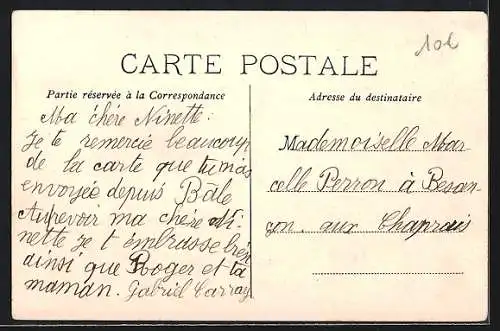 10c
CARTE POSTALE
Partie réservée à la Correspondance
Ma chère Ninette.
Je te remercie beaucoup
de la carte que tu m'as
envoyée depuis Bâle
Aurevoir ma chère Ni-
nette je t'embrasse bien
ainsi que Roger et ta
maman. Gabriel Carray
Adresse du destinataire
Mademoiselle Mar
celle Perron à Besan-
çon. aux Chaprais